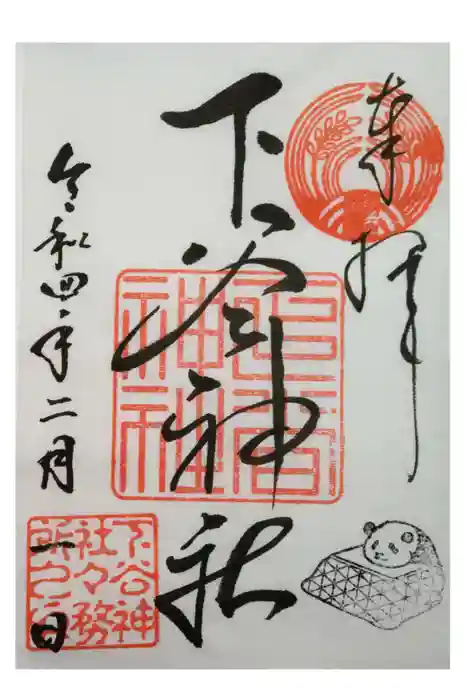 奉拝
下谷神社
令和四年二月一日
下谷神
社々務
所之印